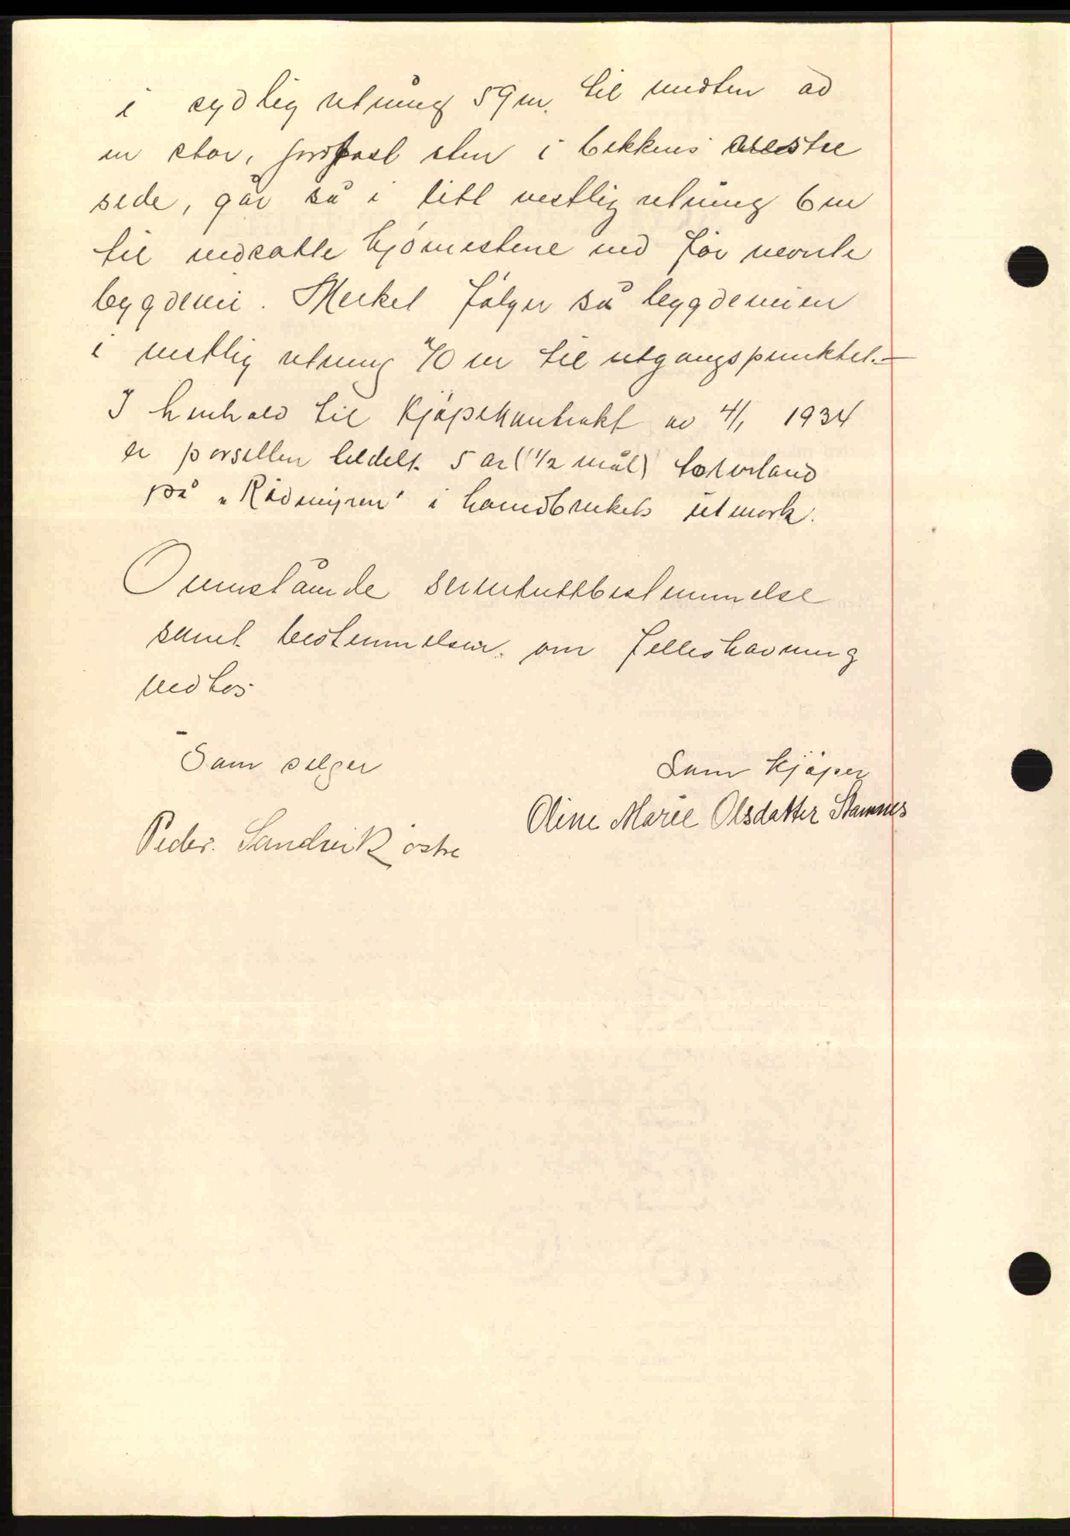 i sydlig retning 59 m. til midten av
en stor, jordfast sten i bekkens vestre
side, går så i litt vestlig retning 6 m
til nedsatte hjörnestene ved för nevnte
bygdevei. Merket fölger så bygdeveien
i vestlig retning 40 m til utgangspunktet.—
I henhold til Kjöpekontrakt av 4/1 1934
er parsellen tildelt 5 ar (1/2 mål) torvland
på „Rådmyren" i hovedbrukets utmark.
Ovenstående servituttbestemmelse
samt bestemmelser om felleshavning
vedtas
Som selger
Som kjöper
Oline Marie Olsdatter Stamnes
Peder Sandvik östre